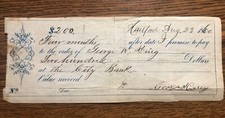 $200. Halifax Aug. 23 1860
Four months after date I promise to pay
to the order of George W.
Two hundred Dollars
at the City Bank
Value received
No. Due